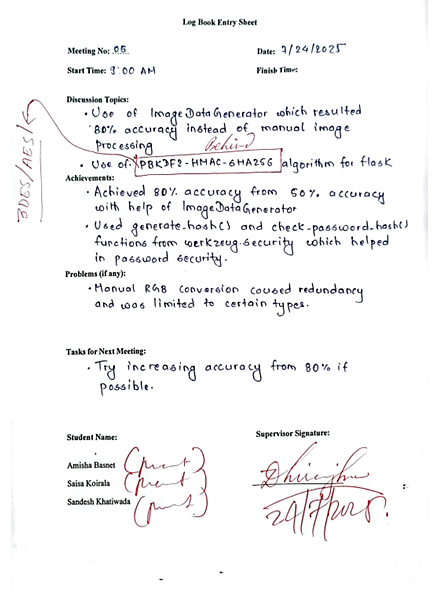 Log Book Entry Sheet
Meeting No: 05 Date: 7/24/2025
Start Time: 9:00 AM Finish Time:
Discussion Topics:
• Use of ImageDataGenerator which resulted
80% accuracy instead of manual image
processing
Behind
• Use of PBKDF2-HMAC-SHA256 algorithm for flask
3DES/AES/
Achievements:
• Achieved 80% accuracy from 50% accuracy
with help of ImageDataGenerator
• Used generate_hash() and check_password_hash()
functions from werkzeug.security which helped
in password security.
Problems (if any):
• Manual RGB conversion caused redundancy
and was limited to certain types.
Tasks for Next Meeting:
• Try increasing accuracy from 80% if
possible.
Student Name: Supervisor Signature:
Amisha Basnet
Saisa Koirala
Sandesh Khatiwada
24/7/2025.